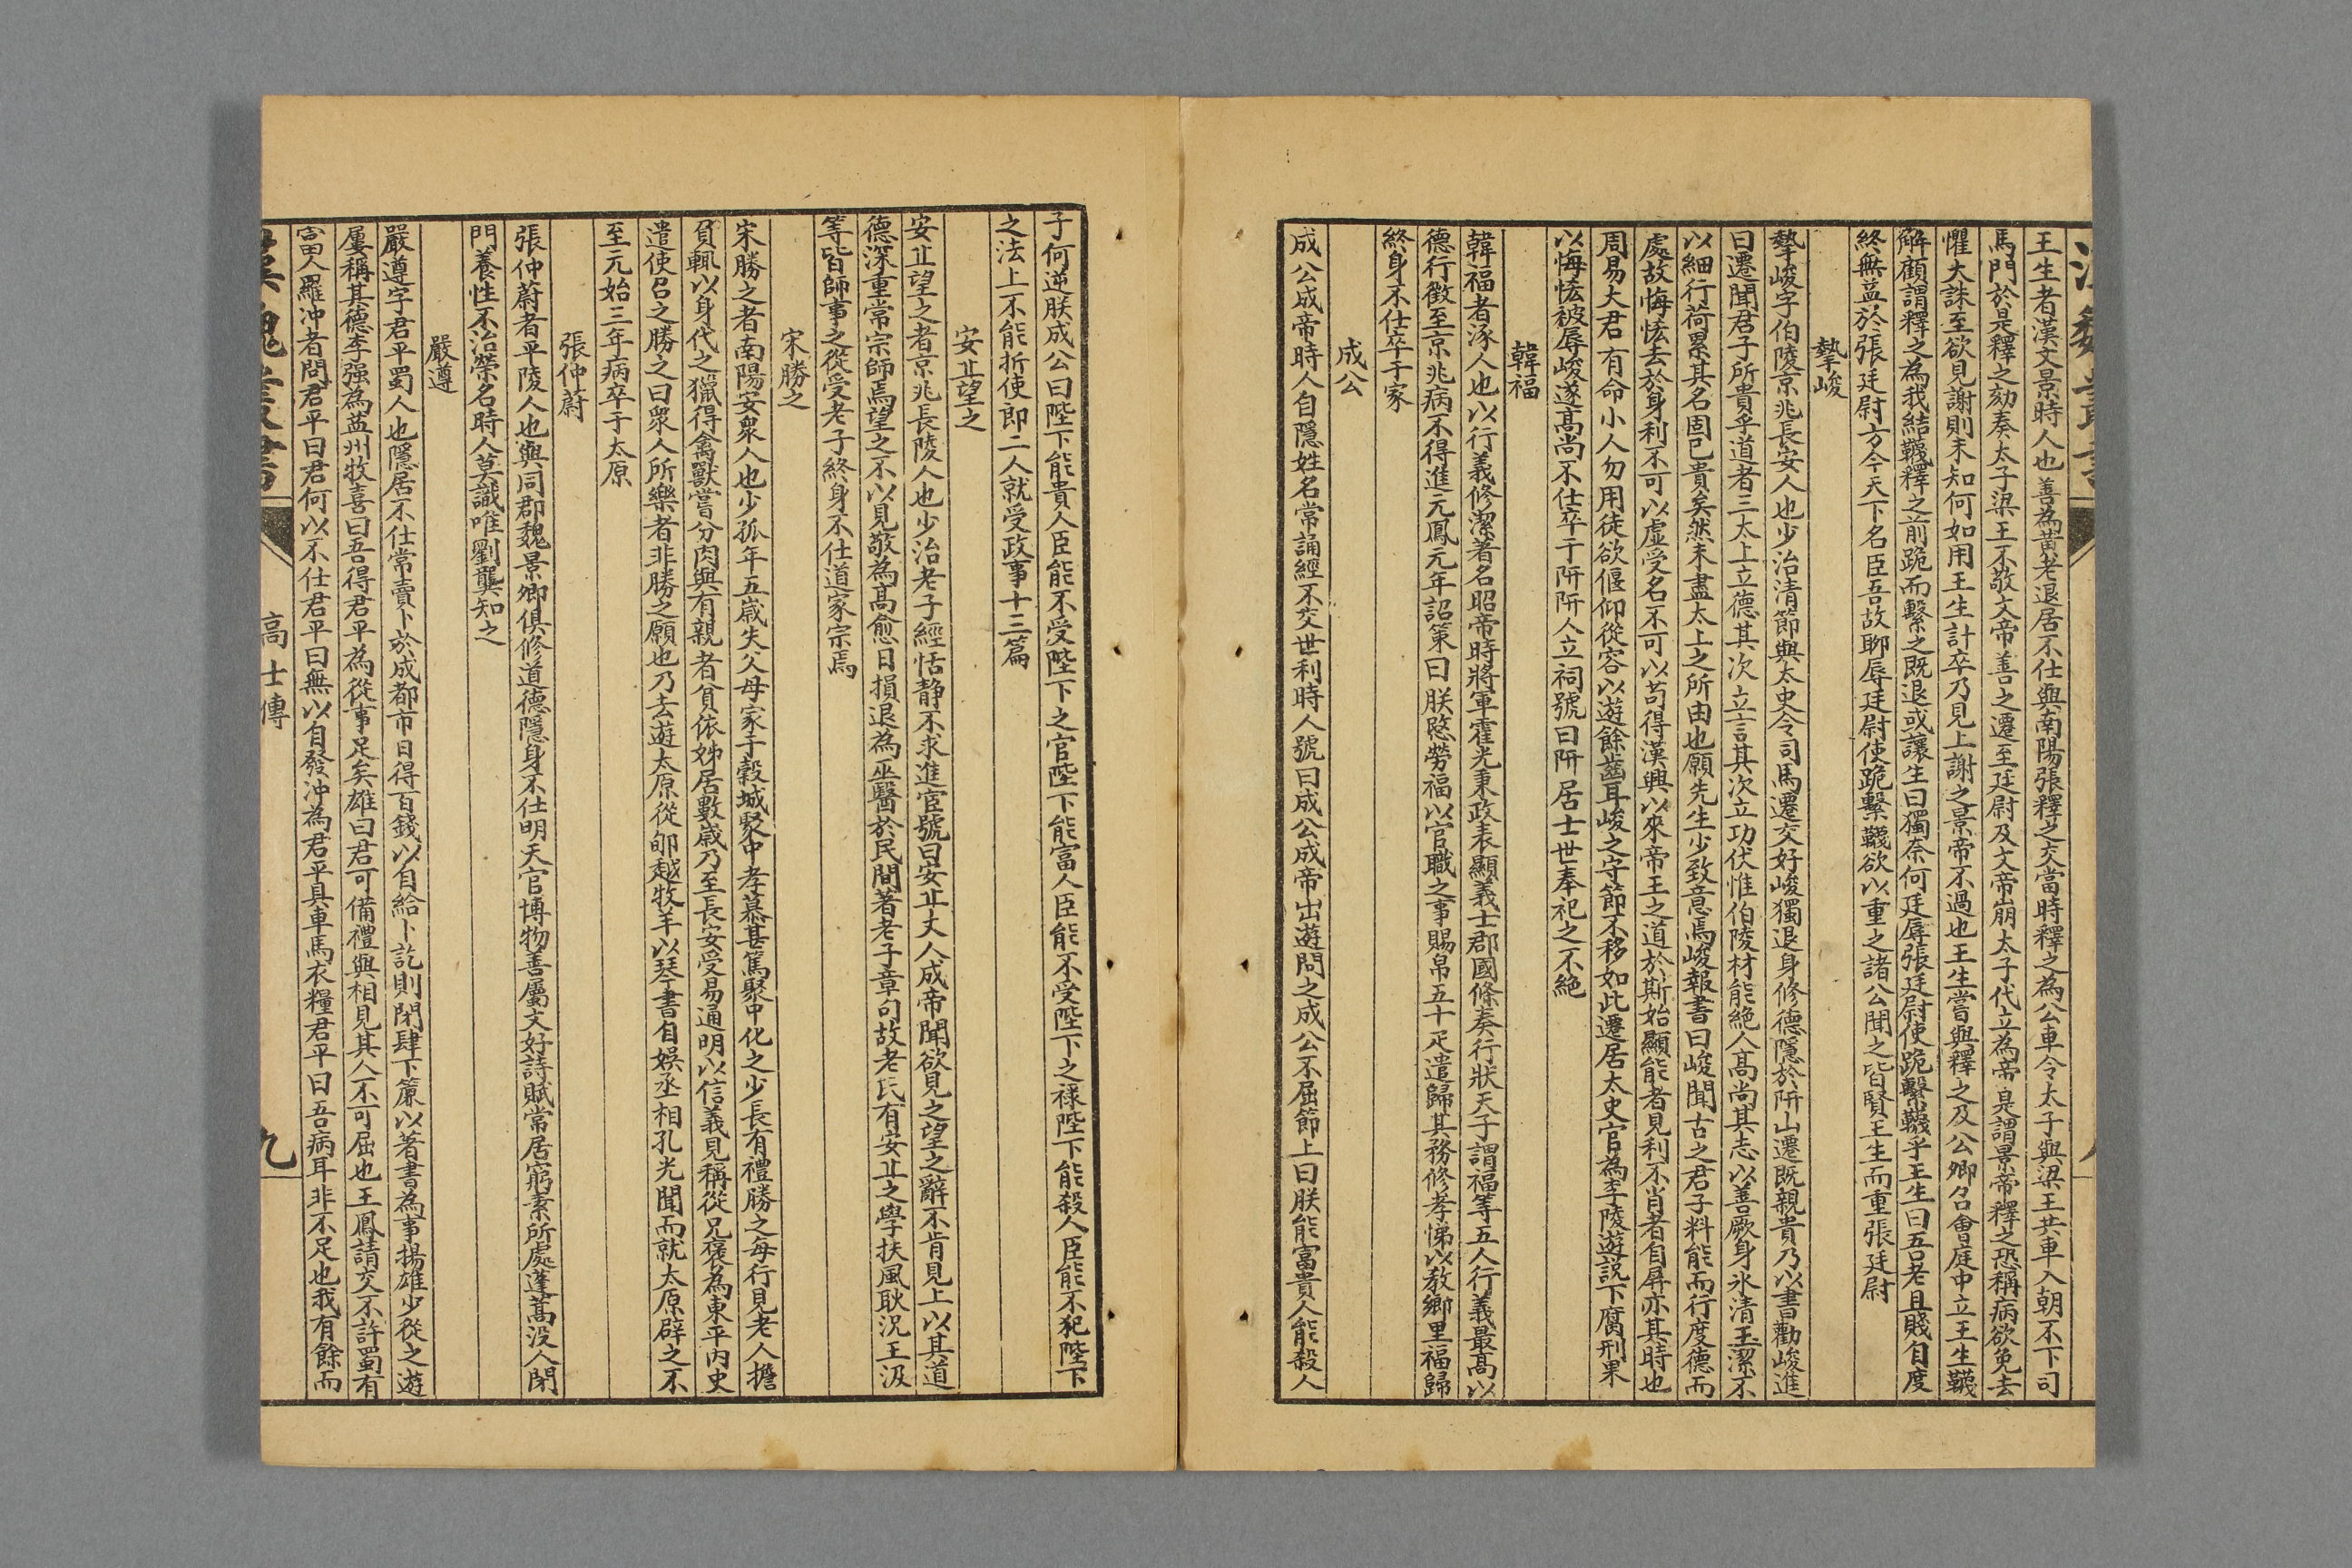 王生者漢文景時人也善為黃老退居不仕與南陽張釋之交當時釋之為公車令太子與梁王共車入朝不下司
馬門於是釋之劾奏太子梁王不敬文帝善之遷至廷尉及文帝崩太子代立為帝是謂景帝釋之恐稱病欲免去
懼大誅至欲見謝則未知何如用王生計卒乃見上謝之景帝不過也王生嘗與釋之及公卿召會庭中立王生韤
解顧謂釋之為我結韤釋之前跪而繫之既退或讓生曰獨奈何廷辱張廷尉使跪繫韤乎王生曰吾老且賤自度
終無益於張廷尉方今天下名臣吾故聊辱廷尉使跪繫韤欲以重之諸公聞之皆賢王生而重張廷尉
摯峻
摯峻字伯陵京兆長安人也少治清節與太史令司馬遷交好峻獨退身修德隱於阱山遷既親貴乃以書勸峻進
曰遷聞君子所貴乎道者三太上立德其次立言其次立功伏惟伯陵材能絕人高尚其志以善厥身氷清玉潔不
以細行荷累其名固已貴矣然未盡太上之所由也願先生少致意焉峻報書曰峻聞古之君子料能而行度德而
處故悔恡去於身利不可以虛受名不可以苟得漢興以來帝王之道於斯始顯能者見利不肖者自屏亦其時也
周易大君有命小人勿用徒欲偃仰從容以遊餘齒耳峻之守節不移如此遷居太史官為李陵遊說下腐刑果
以悔恡被辱峻遂高尚不仕卒于阱阱人立祠號曰阱居士世奉祀之不絕
韓福
韓福者涿人也以行義修潔著名昭帝時將軍霍光秉政表顯義士郡國條奏行狀天子謂福等五人行義最高以
德行徵至京兆病不得進元鳳元年詔策曰朕愍勞福以官職之事賜帛五十疋遣歸其務修孝悌以教鄉里福歸
終身不仕卒于家
成公
成公成帝時人自隱姓名常誦經不交世利時人號曰成公成帝出遊問之成公不屈節上曰朕能富貴人能殺人
子何逆朕成公曰陛下能貴人臣能不受陛下之官陛下能富人臣能不受陛下之祿陛下能殺人臣能不犯陛下
之法上不能折使郎二人就受政事十二篇
安丘望之
安丘望之者京兆長陵人也少治老子經恬静不求進宦號曰安丘丈人成帝聞欲見之望之辭不肯見上以其道
德深重常宗師焉望之不以見敬為高愈日損退為巫醫於民間著老子章句故老氏有安丘之學扶風耿況王汲
等皆師事之從受老子終身不仕道家宗焉
宋勝之
宋勝之者南陽安眾人也少孤年五歲失父母家于穀城聚中孝慕甚篤聚中化之少長有禮勝之每行見老人擔
負輒以身代之獵得禽獸嘗分肉與有親者貧依姊居數歲乃至長安受易通明以信義見稱從兄褒為東平內史
遣使召之勝之曰眾人所樂者非勝之願也乃去遊太原從郇越牧羊以琴書自娛丞相孔光聞而就太原辟之不
至元始三年病卒于太原
張仲蔚
張仲蔚者平陵人也與同郡魏景卿俱修道德隱身不仕明天官博物善屬文好詩賦常居窮素所處蓬蒿没人閉
門養性不治榮名時人莫識唯劉龔知之
嚴遵
嚴遵字君平蜀人也隱居不仕常賣卜於成都市日得百錢以自給卜訖則閉肆下簾以著書為事揚雄少從之遊
屢稱其德李强為益州牧喜曰吾得君平為從事足矣雄曰君可備禮與相見其人不可屈也王鳳請交不許蜀有
富人羅冲者問君平曰君何以不仕君平曰無以自發冲為君平具車馬衣糧君平曰吾病耳非不足也我有餘而
漢魏叢書
高士傳
九